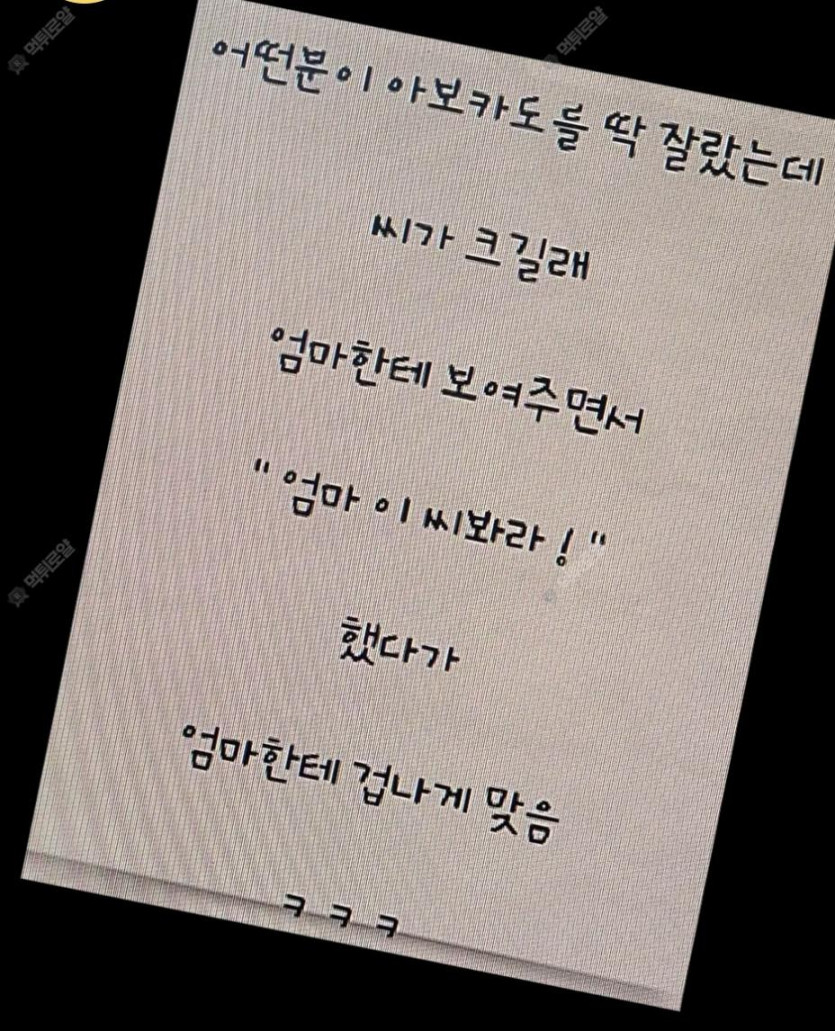 먹튀로얄
먹튀로얄
어떤분이 아보카도를 딱 잘랐는데
씨가 크길래
엄마한테 보여주면서
"엄마 이 씨봐라!"
먹튀로얄
했다가
엄마한테 겁나게 맞음
ㅋㅋㅋ